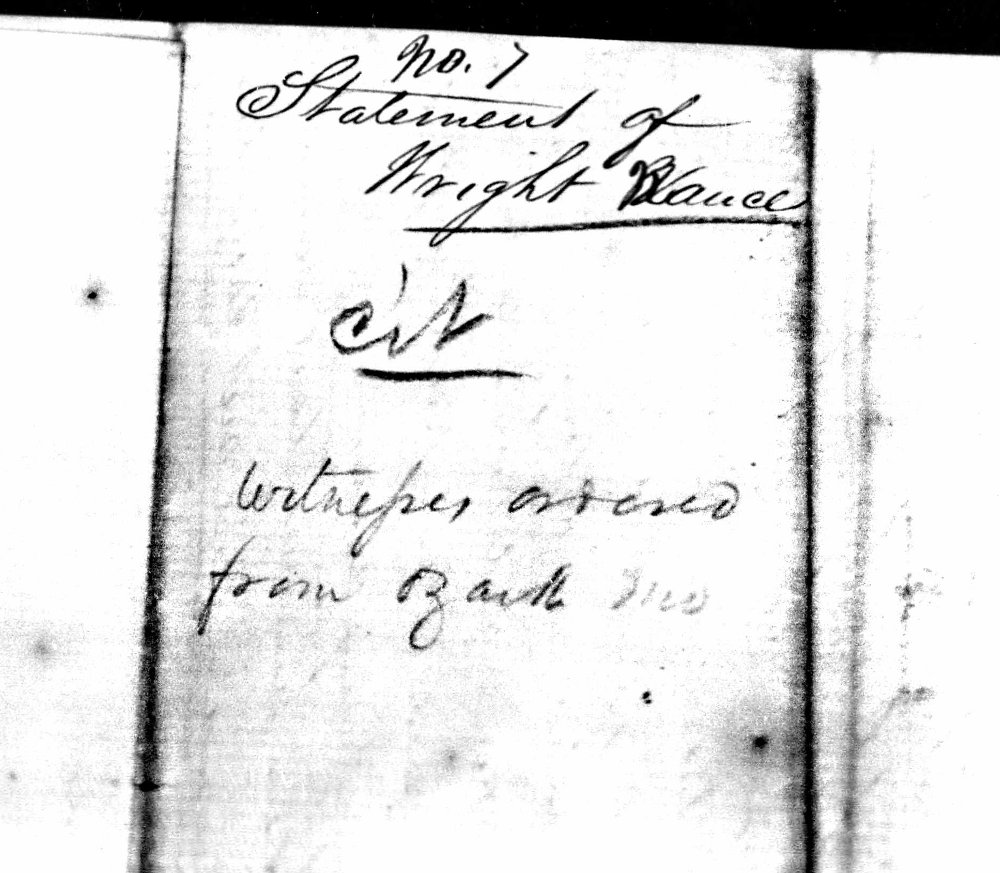 No. 7
Statement of
Wright Blance
Cit
Witnesses ordered
from Ozark Mo